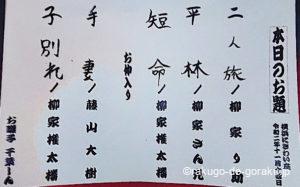 本日のお題
横浜にぎわい座
令和二年十一月
二人旅 柳家り助
平林 柳家さん光
短命 柳家権太楼
お仲入り
手妻 藤山大樹
子別れ 柳家権太楼
お囃子 千葉しん
©rakugo-de-goraku.jp